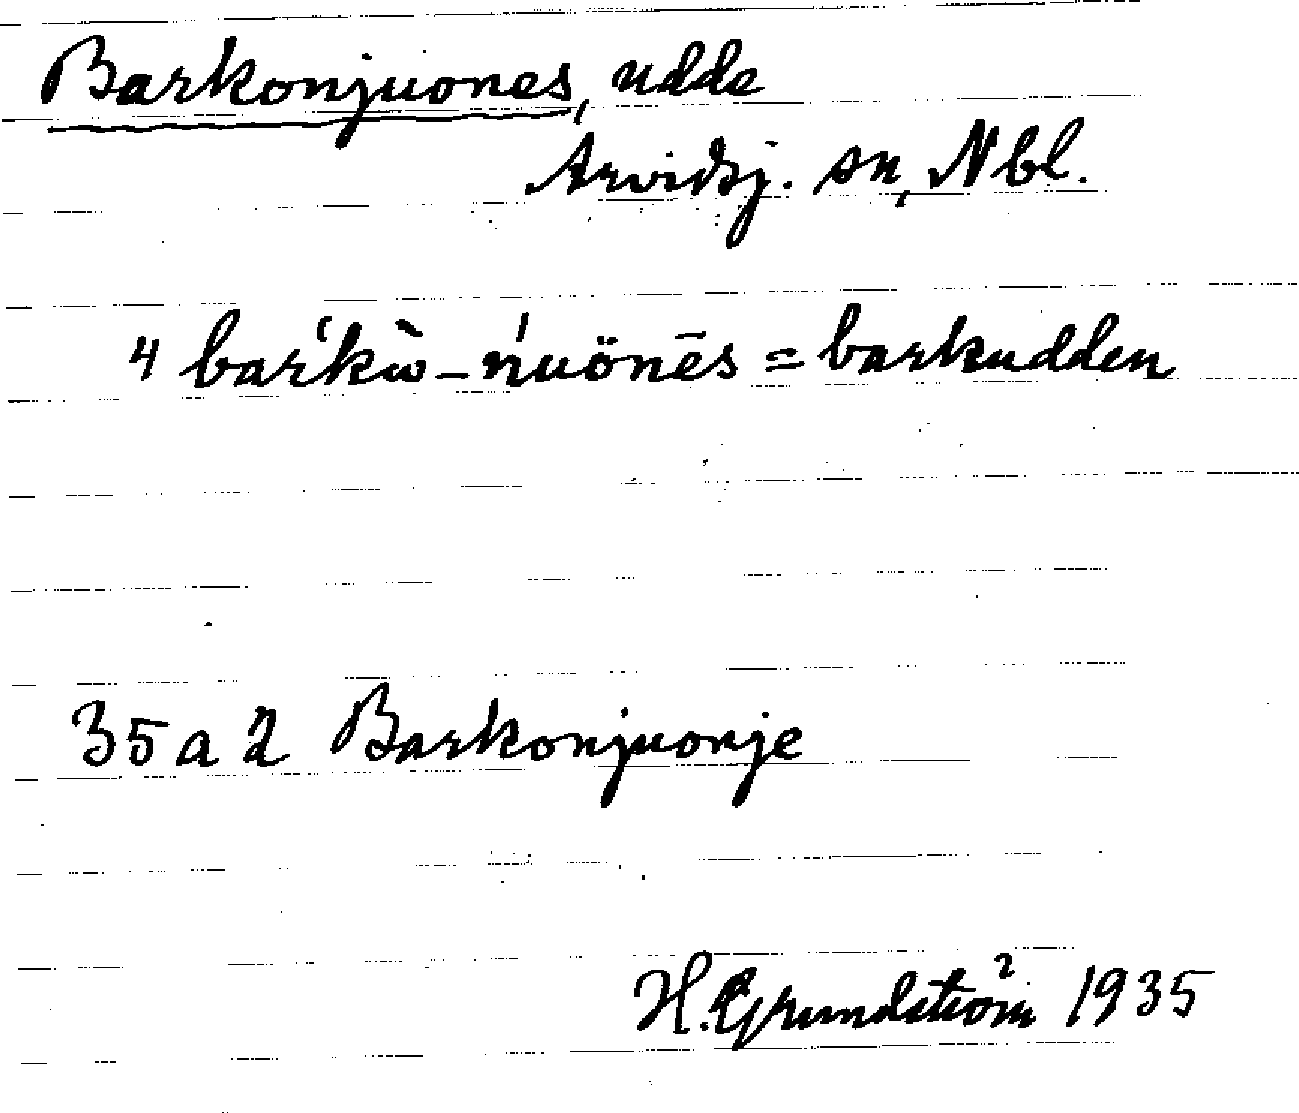 Barkonjuones, udde
Arvidsj. sn, Nbl.
4 bar'kẁ-ńuönēs = barkudden
35 a 2 Barkonjuonje
H. Grundström 1935